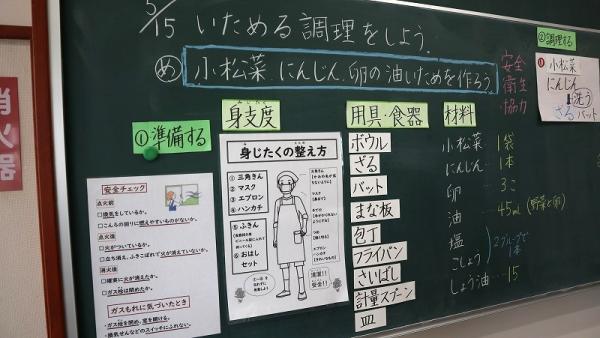 5/15 いためる調理をしよう。
め 小松菜、にんじん、卵の油いためを作ろう
安全
衛生
・協力
②調理する
小松菜
にんじん
洗う
ざる
バット
消火器
①準備する
安全チェック
点火前
□換気をしているか。
□こんろの回りに燃えやすいものがないか。
点火後
□火がついているか。
□立ち消え、ふきこぼれで火が消えていないか。
消火後
□確実に火が消えたか。
□ガス栓は閉めたか。
ガスもれに気づいたとき
・ガス栓を閉め、窓を開ける。
・換気せんなどのスイッチにふれない。
身支度
身じたくの整え方
①三角きん
②マスク
③エプロン
④ハンカチ
⑤ふきん
⑥おはし
セット
清潔!!
安全!!
用具・食器
ボウル
ざる
バット
まな板
包丁
フライパン
さいばし
計量スプーン
皿
材料
小松菜…1袋
にんじん…1本
卵…3こ
油…45ml(野菜と卵)
塩
こしょう
2グループで
1本
しょう油…15